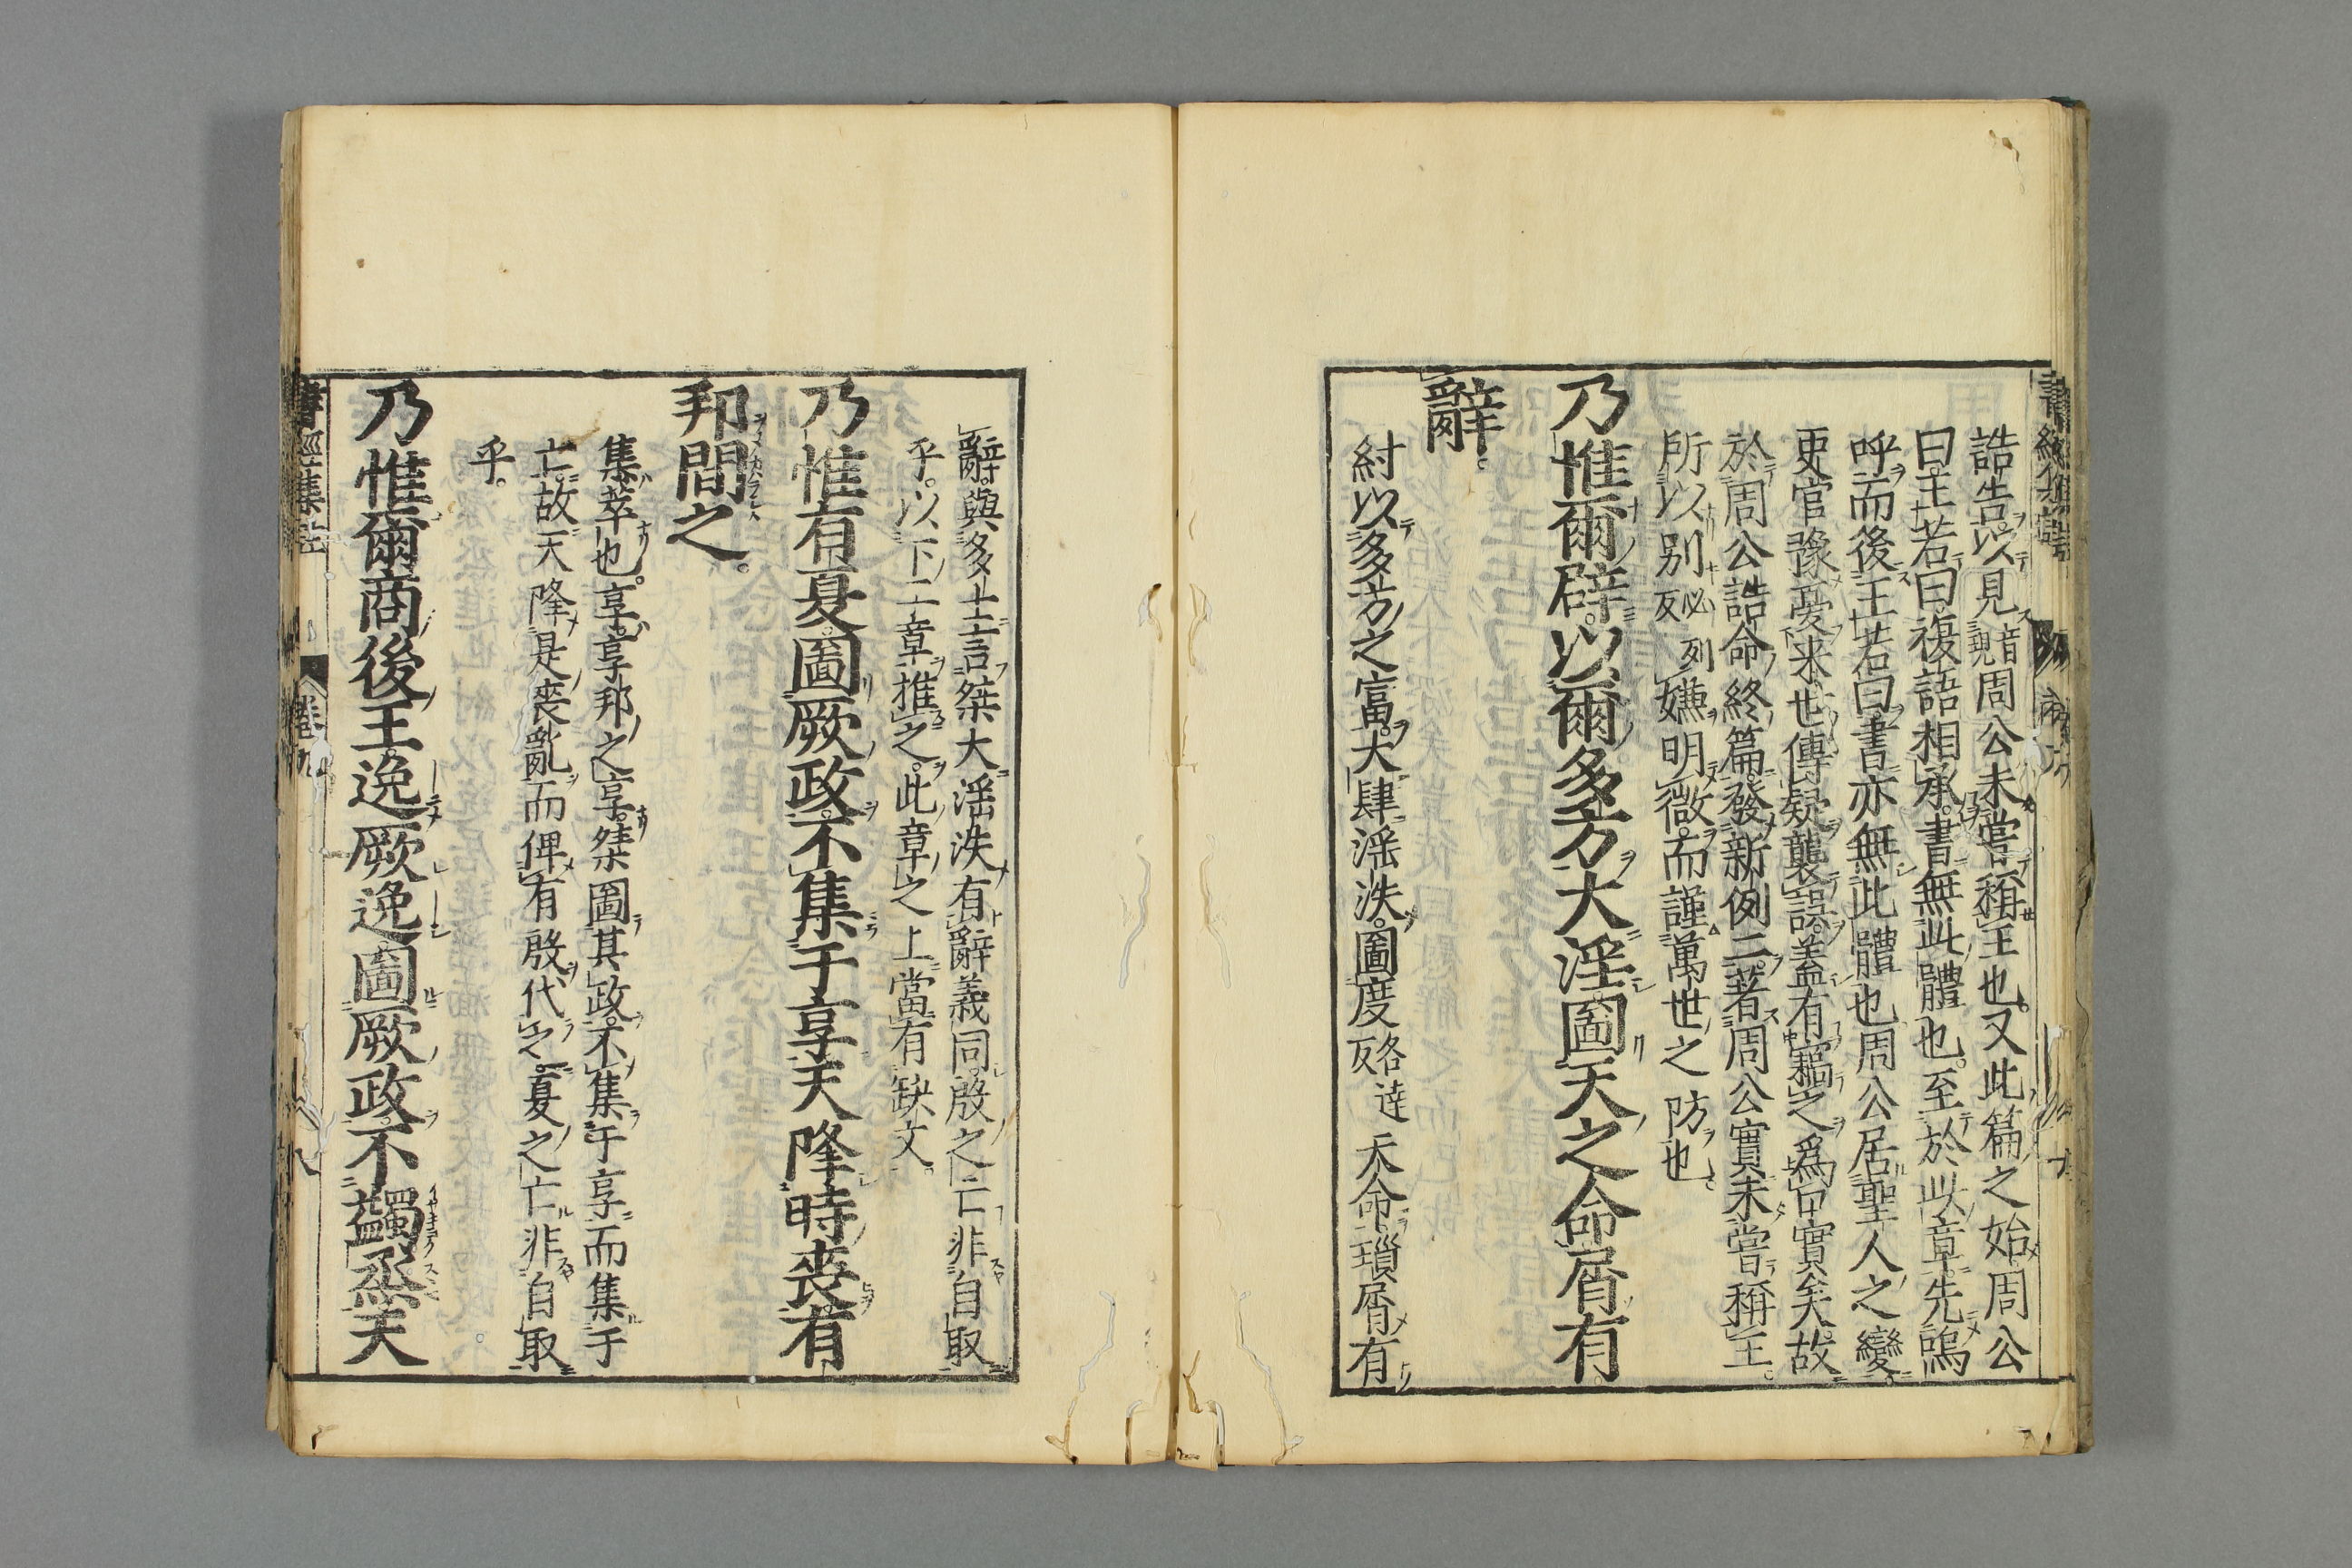 誥告以見音現周公未嘗稱王也又此篇之始周公
曰王若曰復語相承書無此體也至於此章先嗚
呼而後王若曰書亦無此體也周公居聖人之變
吏官豫憂来世傳疑襲誤蓋有竊之爲口實矣故
於周公誥命終篇發新例二著周公實未嘗稱王
所以别必列反嫌明微而謹萬世之防也
乃惟爾辟以爾多方大淫圖天之命屑有
辭
紂以多方之富大肆淫泆圖度達各反天命瑣屑有
辭與多士言桀大淫泆有辭義同殷之亡非自取
乎以下二章推之此章之上當有缺文
乃惟有夏圖厥政不集于享天降時喪有
邦間之
集萃也享享邦之享桀圖其政不集于享而集于
亡故天降是喪亂而俾有殷代之夏之亡非自取
乎
乃惟爾商後王逸厥逸圖厥政不蠲烝天
書經集註 卷九 八